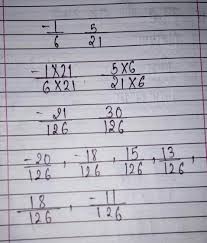 -1/6 5/21
-1×21/6×21 5×6/21×6
-21/126 30/126
-20/126, -18/126, 15/126, 13/126,
18/126, -11/126